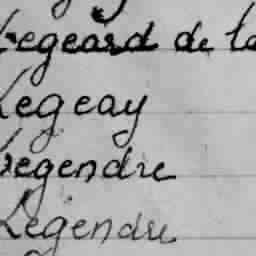 Legeard de la
Legeay
Legendre
Legendre